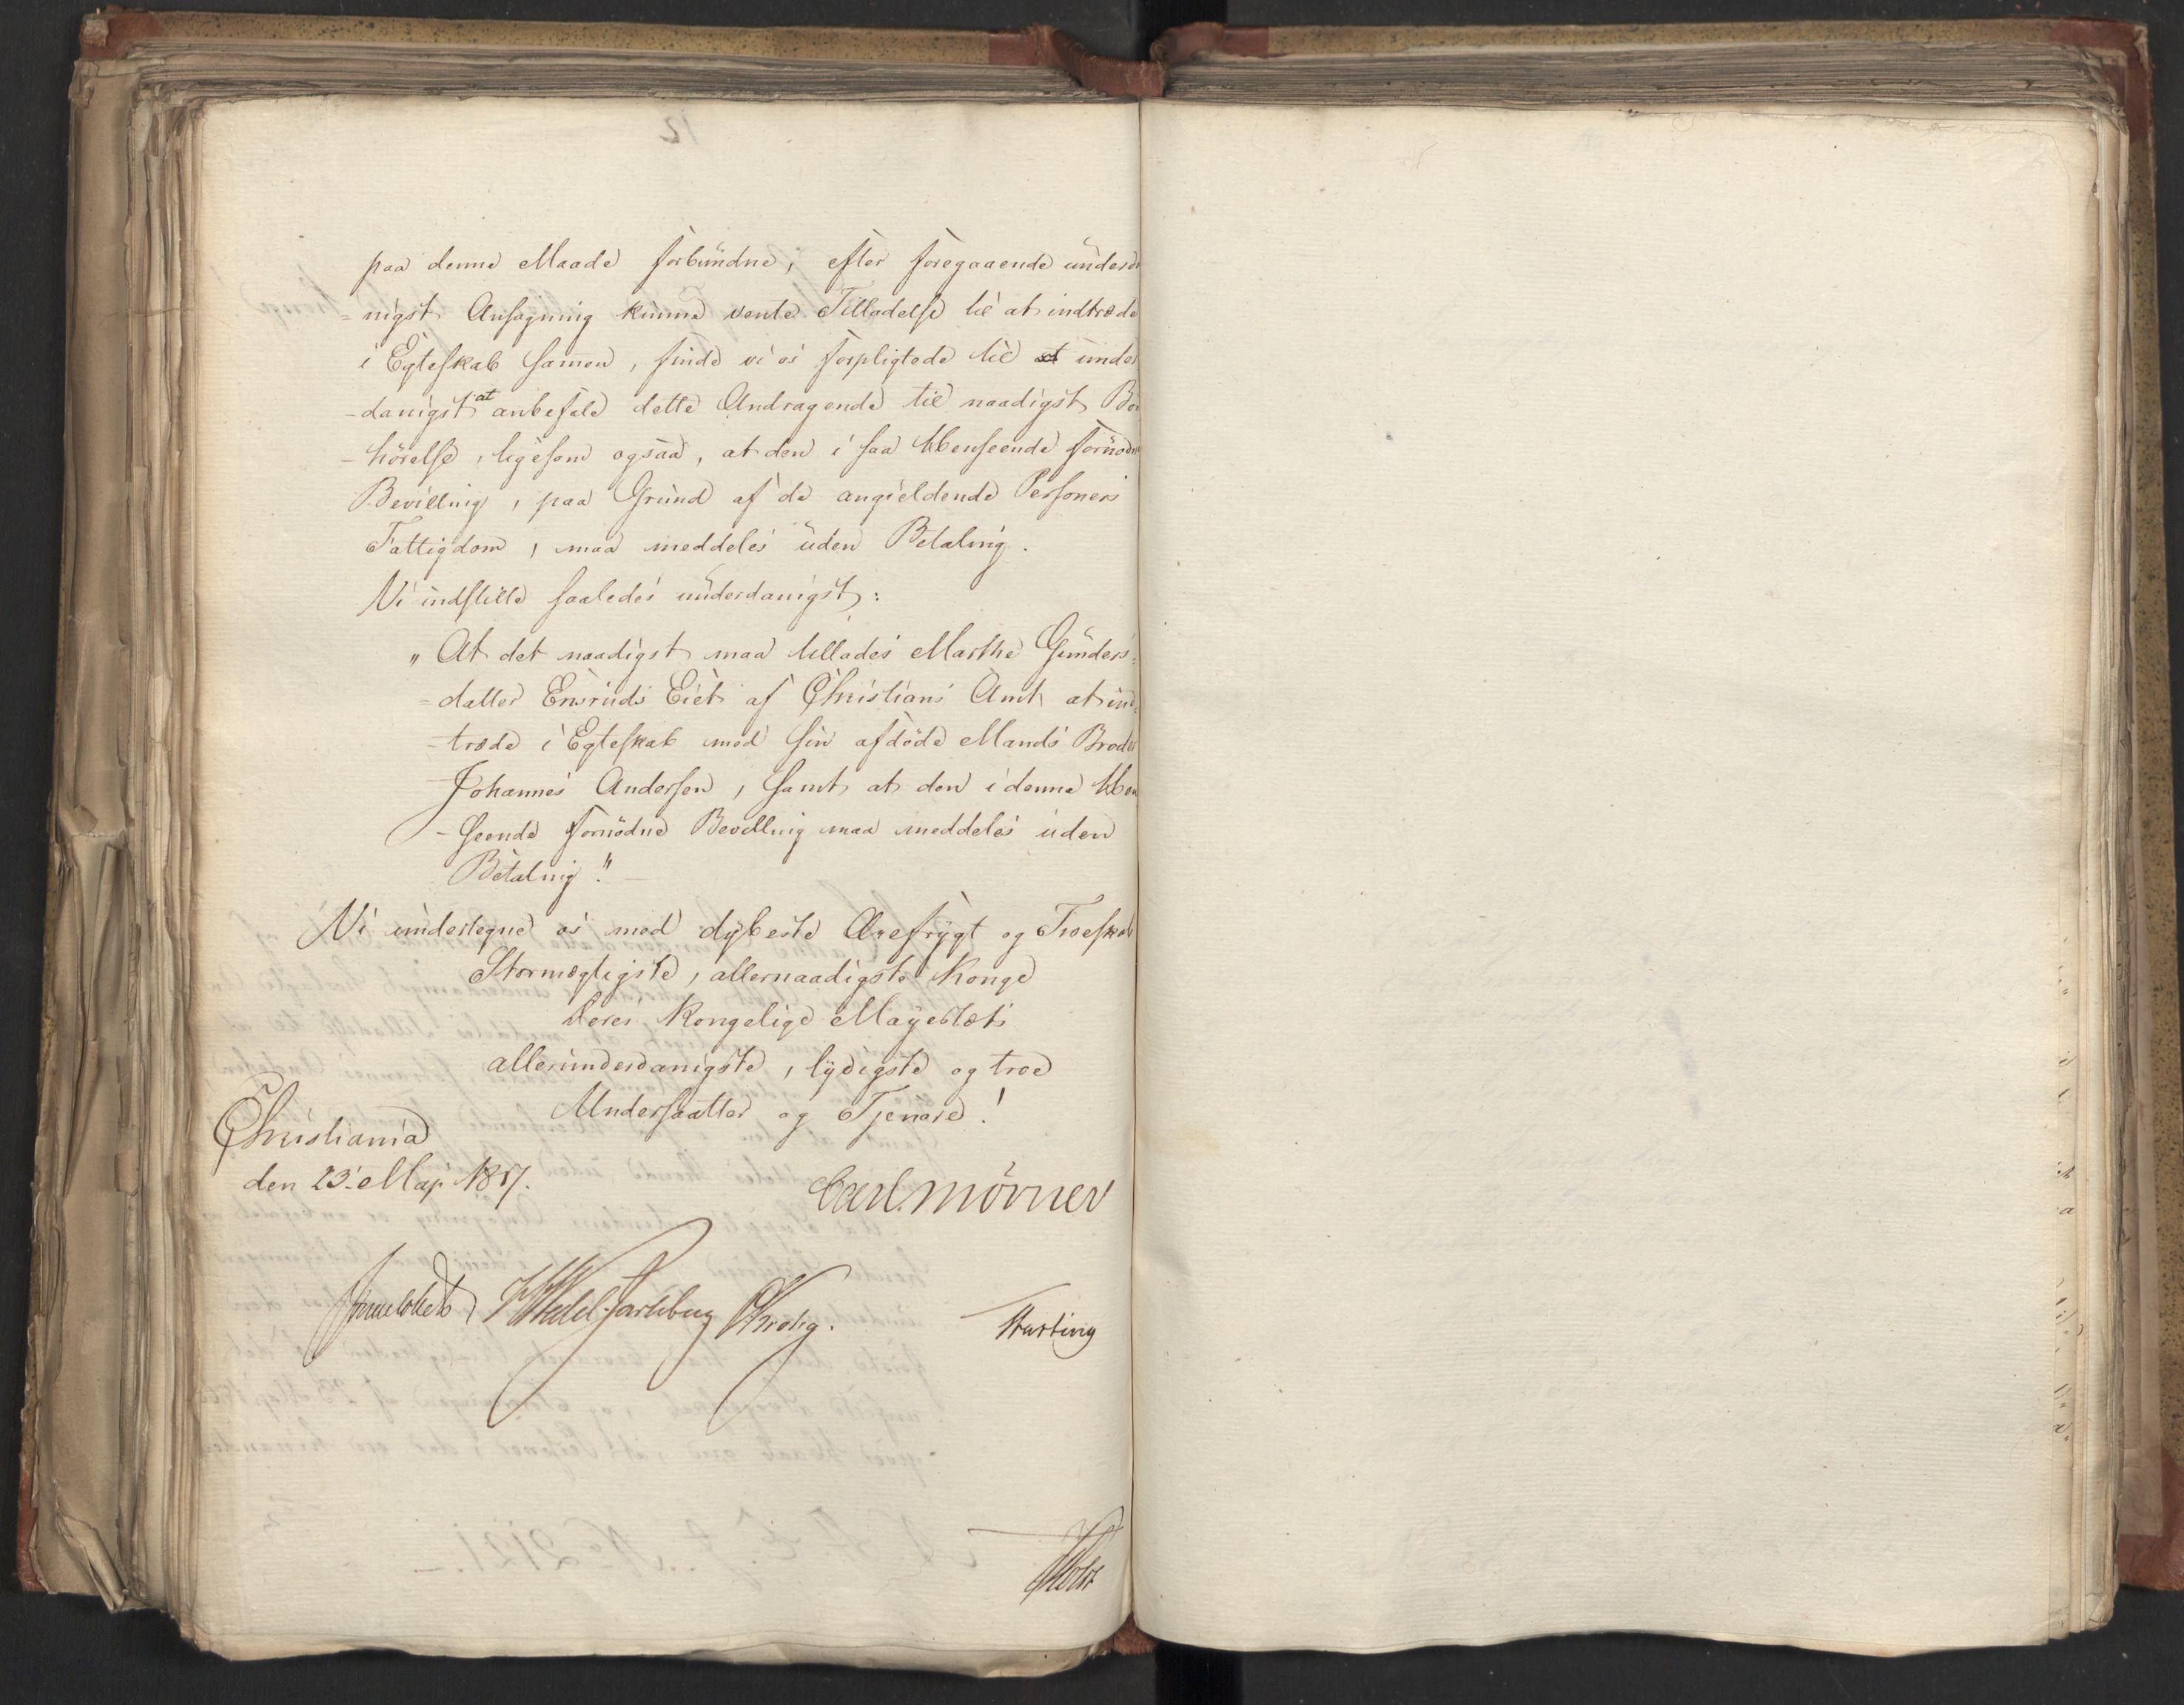 paa denne Maade forbundne, efter foregaaende underda
-nigst Ansøgning kunne vente Tilladelse til at indtræde
i Egteskab sammen, finde vi os forpligtede til under
-danigst at anbefale dette Andragende til naadigst Bøn
-hörelse, ligesom ogsaa, at den i saa Henseende fornödne
Bevilling, paa Grund af de angieldende Personers
Fattigdom, maa meddeles uden Betaling.
Vi indstille saaledes underdanigst:
"At det naadigst maa tillades Marthe Gunders-
-datter Ensruds Eiet af Christians Amt at ind-
-træde i Egteskab med sin afdöde Mands Broder
Johannes Andersen, samt at den i denne Hen
-seende fornödne Bevilling maa meddeles uden
Betaling."
Vi undertegne os med dybeste Ærefrygt og Troeskab
Stormægtigste, allernaadigste Konge
Deres Kongelige Mayestæts
allerunderdanigste, lydigste og troe
Undersaatter og Tjenere!
Christiania
den 23 Maj 1817.
Carl Mörner
Sommerhielm HWedel Jarlsberg CKrohg.
Hartwig
Holst